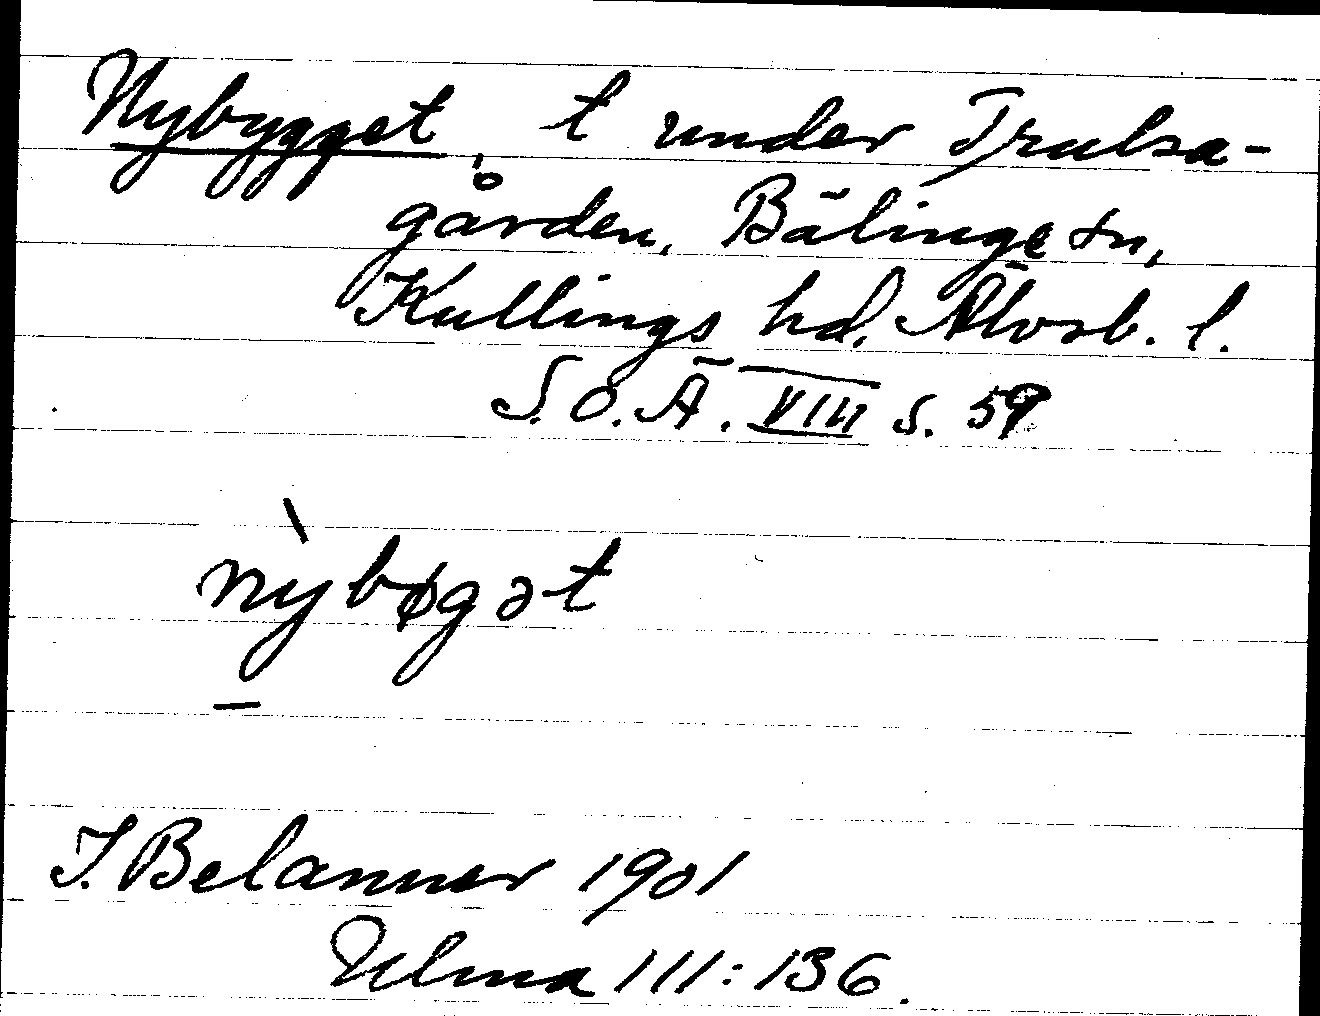 Nybygget, t under Trulsa-
gården, Bälinge sn,
Kullings hd. Älvsb. l.
S.O.Ä. VIII s. 59
nỳbøgət
I. Belanner 1901
Ulma 111:136.